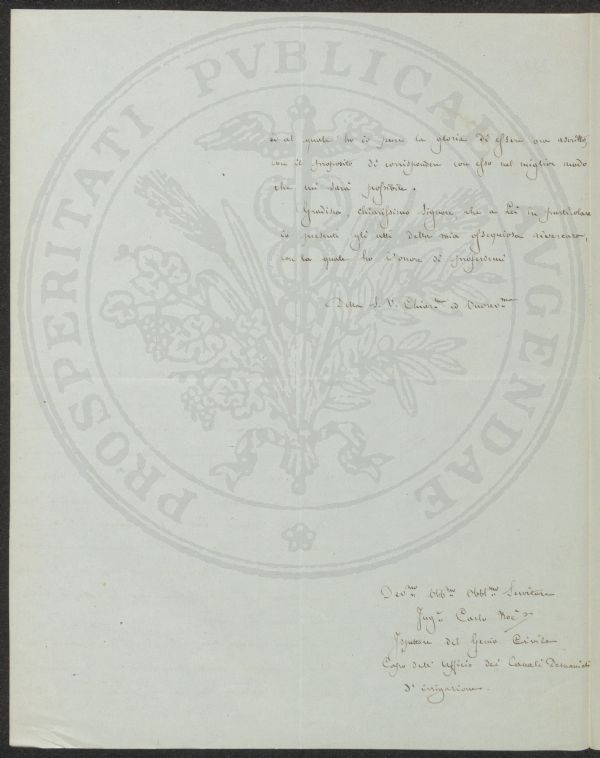 PROSPERITATI PVBLICAE AVGENDAE
ed al quale ho io pure la gloria di essere ora ascritto,
con il proposito di corrispondere con esso nel miglior modo
che mi sarà possibile.
Gradisca, chiarissimo Signore, che a Lei in particolare
io presenti gli atti della mia ossequiosa riverenza,
con la quale ho l'onore di professarmi
Della S. V. Chiar.ma ed Onorev.ma
Dev.mo Obb.mo Obbl.mo Servitore
Ing.re Carlo Noè
Ispettore del Genio Civile
Capo dell'Ufficio dei Canali Demaniali
d'irrigazione.